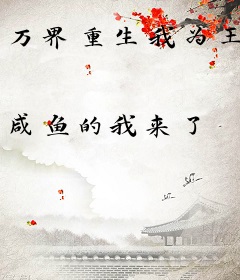 万界重生我为王
咸鱼的我来了